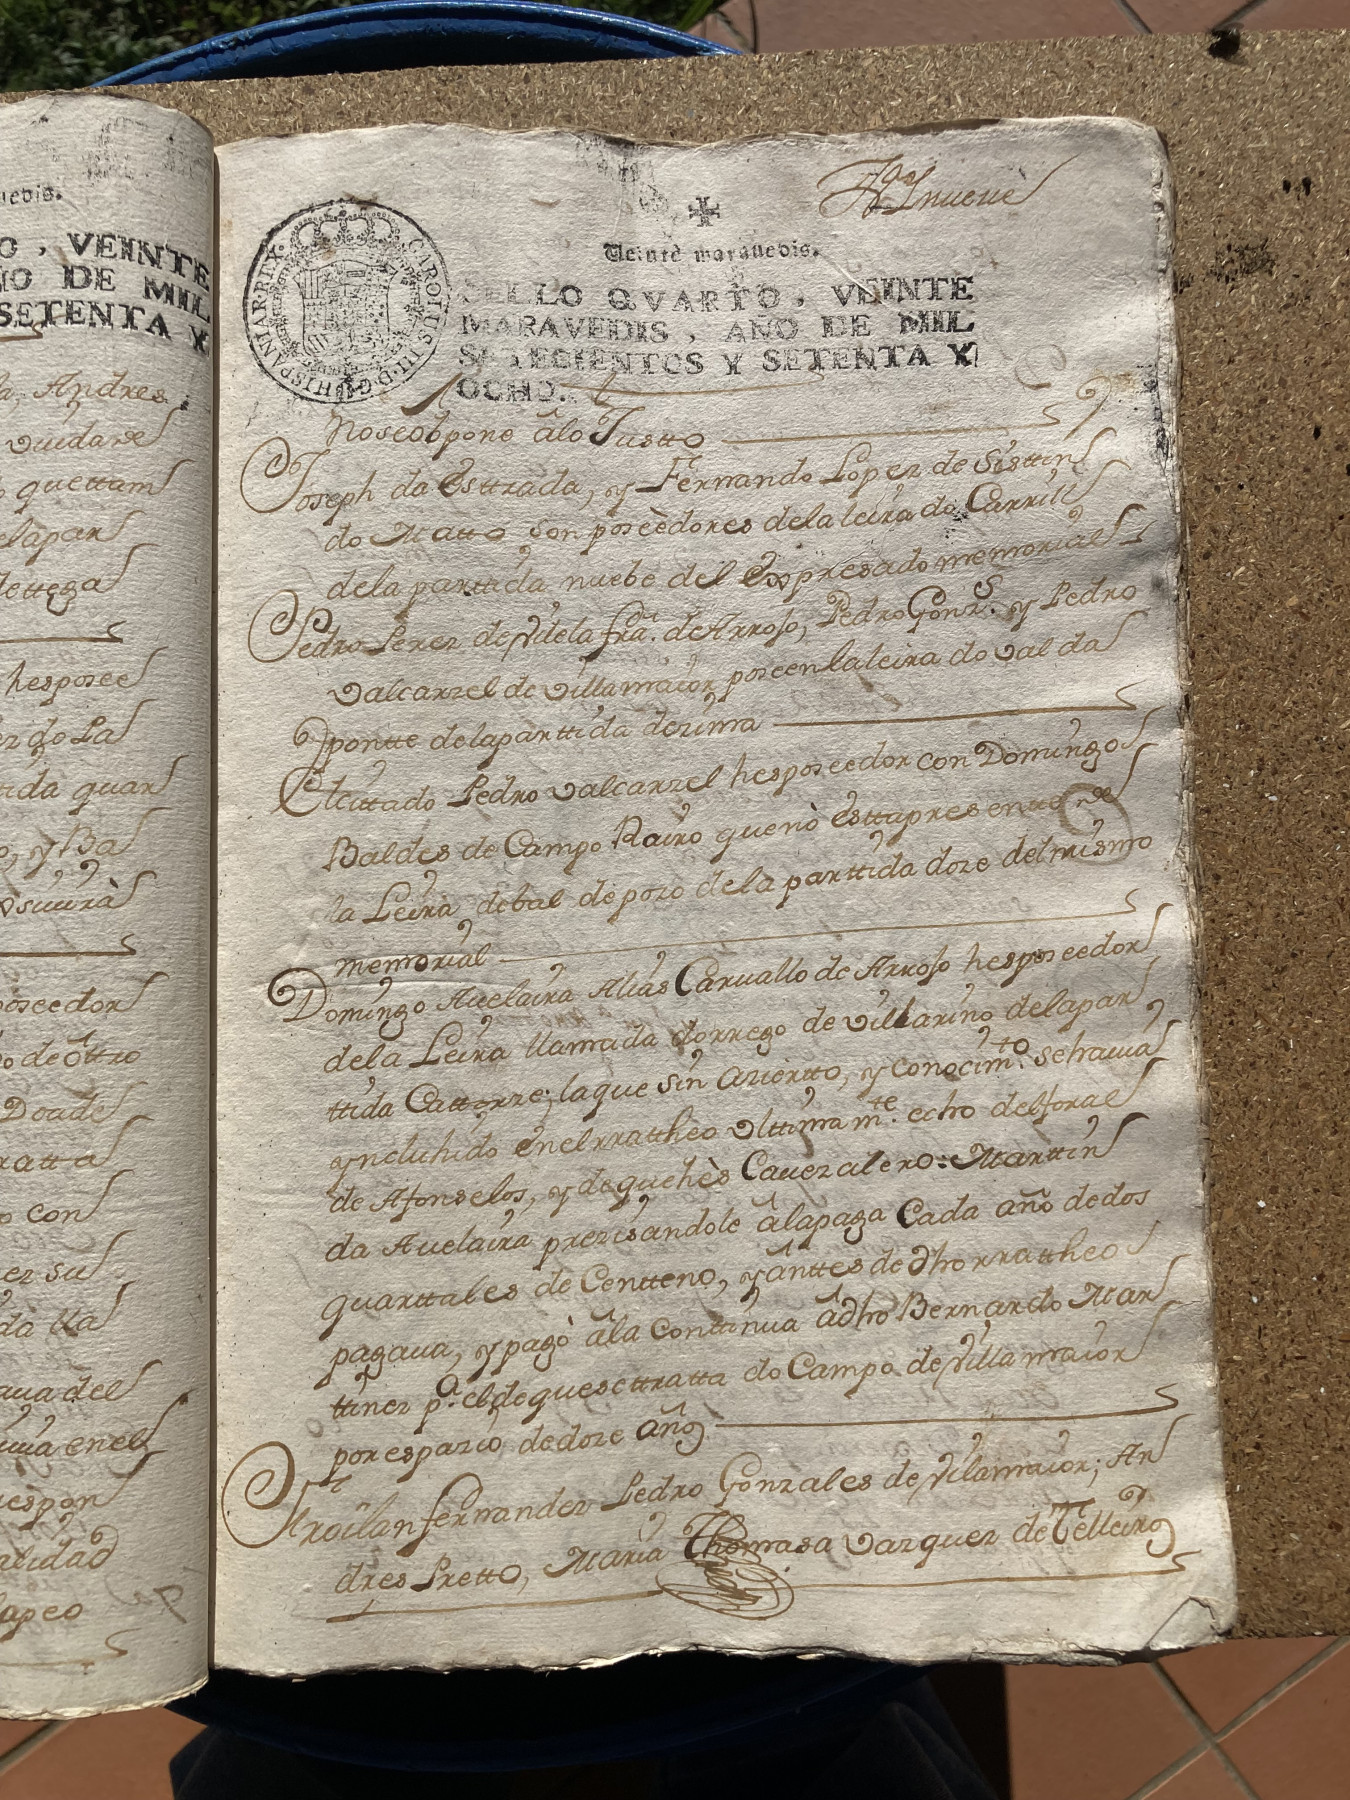 uedis.
O, VEINTE
ÑO DE MIL
SETENTA Y
Andres
vuidare
quettam
elapar
hesposee
ez do La
tida quar
y Ba
poseedor
o de óttro
Doade
ratta
o con
ez su
da lla
aua del
enel
uespon
alidad
apeo
nueue
Veinte marauedis.
SELLO QVARTO, VEINTE
MARAVEDIS, AÑO DE MIL
SETECIENTOS Y SETENTA Y
OCHO.
CAROLUS III D G HISPANIAR REX
noseobpone âlo Justto
Joseph da Esttrada, y Fernando Lopez de Sisttin
do Matto son poseèdores dela leira do Carrill
dela parttida nuebe del Expresado memorial
Pedro Perez de Vilela fra. de Arrojo, Pedro Gonzs. y Pedro
valcarzel de villamaior poseen la leira do val da
pontte dela parttida dezima
El cittado Pedro valcarzel hesposeedor con Domingo
Baldes de Campo Rairo quenò esttapresentte de
la Leira debal de pozo dela parttida doze del mismo
memorial
Domingo Auelaira Alias Caruallo de Arrojo hesposeedor
dela Leira llamada dorrego de villarino delapar
ttida Cattorze; la que sin aziertto, y conocimto. sehauia
yncluhido enel rrattheo vlttimamte. echo del foral
de Afonselos, y de quehès Cauezalero: Marttin
da Auelaira prezisandole âlapaga Cada año de dos
quarttales de Centteno, y ânttes de dho rrattheo
pagaua, y pagò âla conttinua âdho Bernardo Mar
ttinez pa. el de quesettratta do Campo de villamaior
por espazio de doze año
Froilan fernandez Pedro Gonzales de vilamaior; An
dres Pretto, Maria Thomasa vazquez de Telleiro